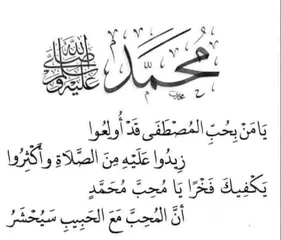 محمد صلى الله عليه وسلم
يَا مَنْ بِحُبِّ المُصْطَفَى قَدْ أُولِعُوا
زِيدُوا عَلَيْهِ مِنَ الصَّلَاةِ وأَكْثِرُوا
يَكْفِيكَ فَخْرًا يَا مُحِبَّ مُحَمَّدٍ
أنَّ المُحِبَّ مَعَ الحَبِيبِ سَيُحْشَرُ